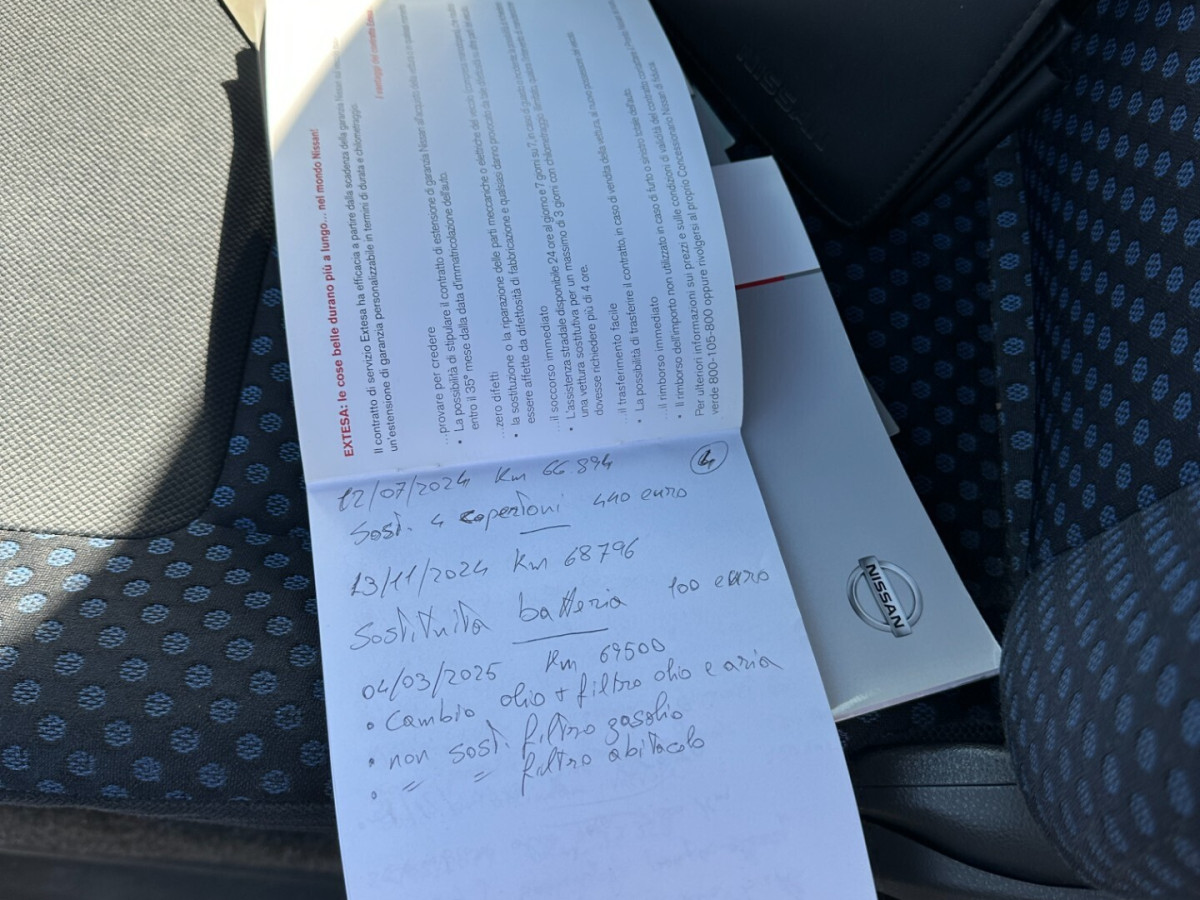 EXTESA: le cose belle durano più a lungo... nel mondo Nissan!
Il contratto di servizio Extesa ha efficacia a partire dalla scadenza della garanzia
un'estensione di garanzia personalizzabile in termini di durata e chilometraggio.
I vantaggi del contratto
...provare per credere
• La possibilità di stipulare il contratto di estensione di garanzia Nissan all'acquisto della vettura o in qualsiasi
entro il 35° mese dalla data d'immatricolazione dell'auto.
...zero difetti
• la sostituzione o la riparazione delle parti meccaniche o elettriche del veicolo
essere affette da difettosità di fabbricazione e qualsiasi danno provocato da tale difettosità
...il soccorso immediato
• L'assistenza stradale disponibile 24 ore al giorno e 7 giorni su 7, in caso di guasto
una vettura sostitutiva per un massimo di 3 giorni con chilometraggio illimitato
dovesse richiedere più di 4 ore.
...il trasferimento facile
• La possibilità di trasferire il contratto, in caso di vendita della vettura, al nuovo proprietario
...il rimborso immediato
• Il rimborso dell'importo non utilizzato in caso di furto o sinistro totale dell'auto.
Per ulteriori informazioni sui prezzi e sulle condizioni di validità del contratto
verde 800-105-800 oppure rivolgersi al proprio Concessionario Nissan di fiducia.
4
12/07/2024 Km 66894
Sost. 4 copertoni 440 euro
13/11/2024 Km 68796
Sostituita batteria 100 euro
04/03/2025 Km 69500
• Cambio olio + filtro olio e aria
• non sost. filtro gasolio
• " " filtro abitacolo
NISSAN
NISSAN